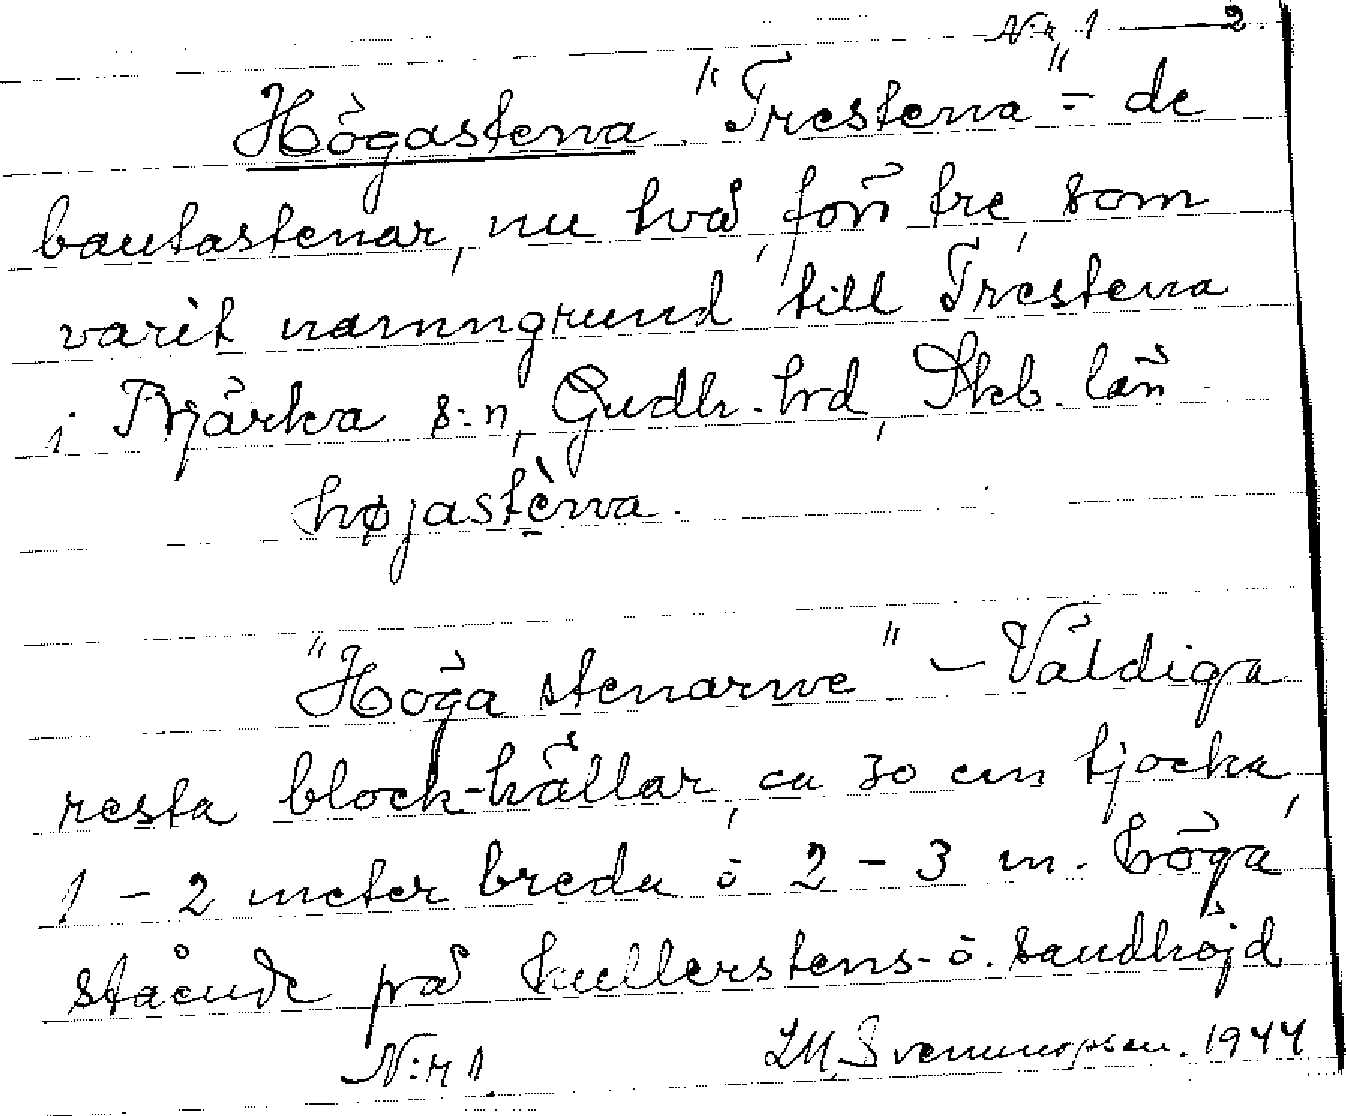 N:r 1 — 2.
Högastena "Trestena" = de
bautastenar, nu två, förr tre, som
varit namngrund till Trestena
i Bjärka s:n, Gudh. hrd, Skb. län
högjastèna.
"Höga stenarne" – Väldiga
resta block-hällar, ca 30 cm tjocka,
1 – 2 meter breda o 2 – 3 m. höga
stående på kullerstens- o. sandhöjd
N:r 1 LM Svenungsson. 1944